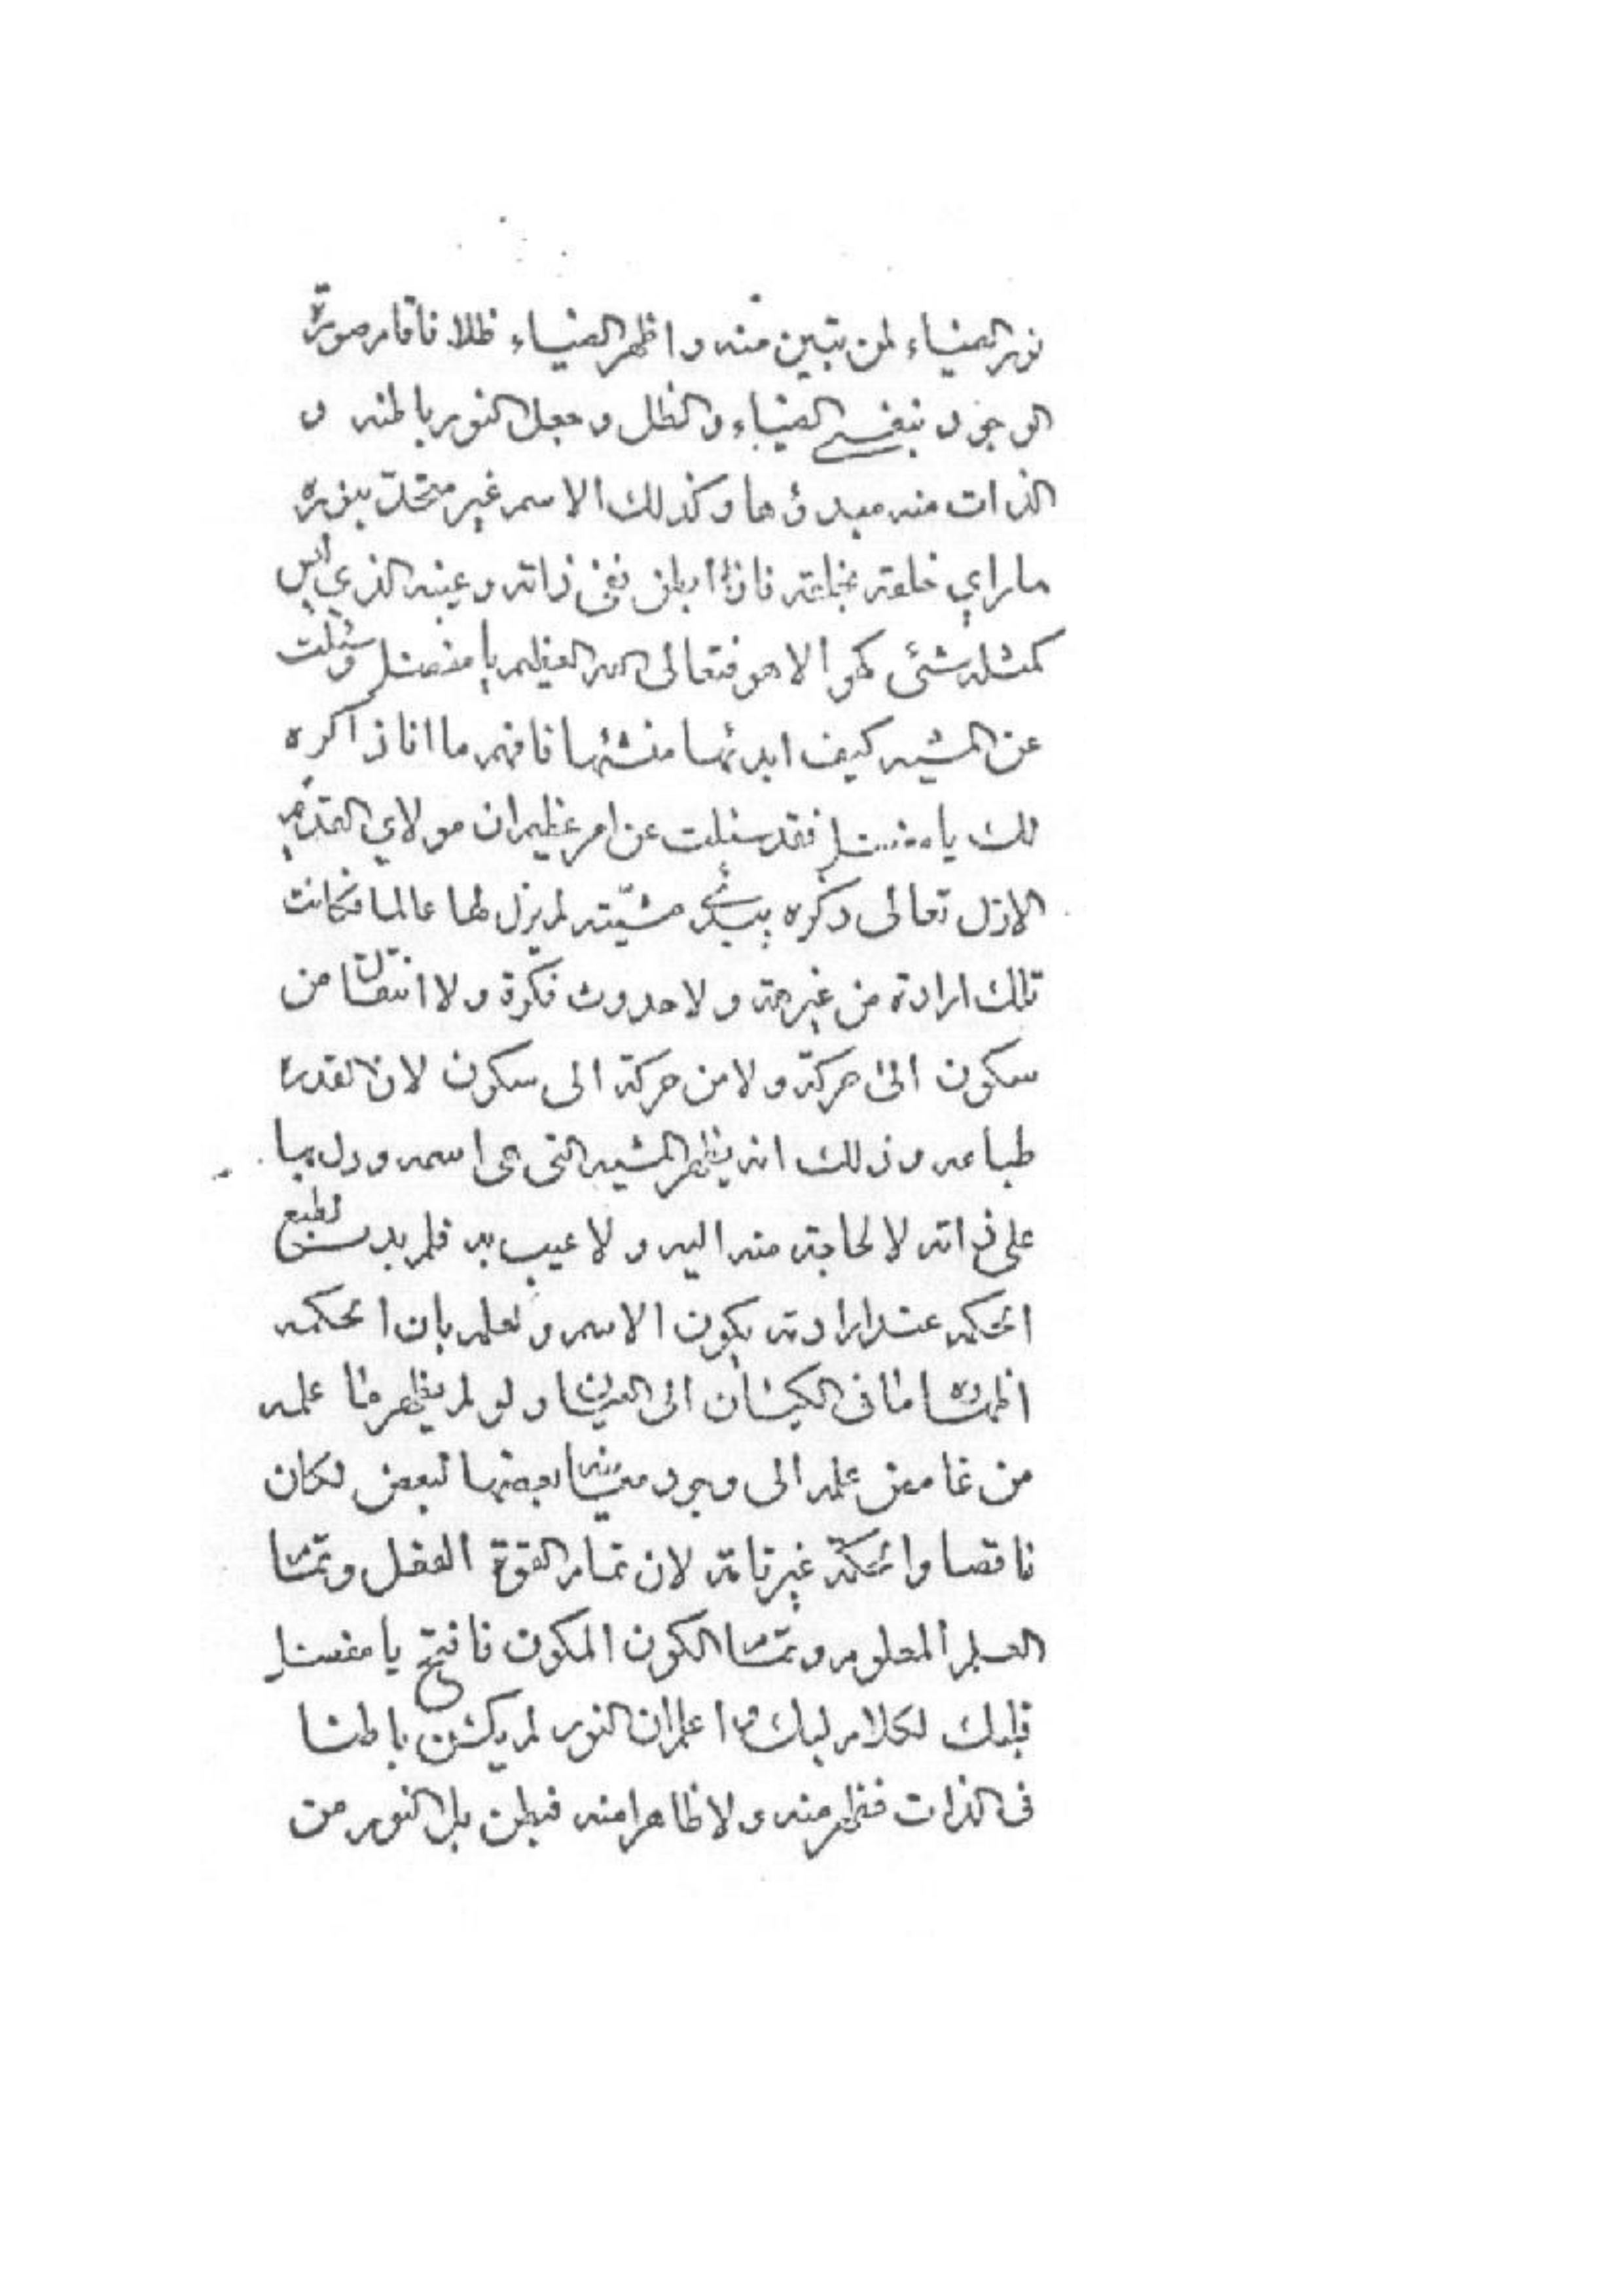 نور الضياء لمن تبين منه و اظهر الضياء ظلا فاقام صورة
الوجود بنفسي الضياء و الظل و جعل النور باطنه و
الذات منه مبدؤها و كذلك الاسم غير متحد بنوره
ما راي خلقه بخلقه فاذا ابطن ففى ذاته و غيبه الذي ليس
كمثله شئى كهو الا هو فتعالى الله العظيم يا مفضل و سئلت
عن المشيه كيف ابدئها منشئها فافهم ما انا ذاكره
لك يا مفضل فقد سئلت عن امر عظيم ان مولاي القديم
الازل تعالى ذكره يبدئ مشيّته لم يزل لها عالما فكانت
تلك ارادة من غير همة و لا حدوث فكرة و لا انتقال من
سكون الى حركة و لا من حركة الى سكون لان القدرة
طباعه و ذلك انه يظهر المشيه التى هى اسمه و دل بها
على ذاته لا لحاجة منه اليه و لا عيب به فلم بدت لطبع
الحكمه عند ارادته يكون الاسم و لعلم بان الحكمه
اظهار ما فى الكيان الى العيان و لو لم يظهر ما علمه
من غامض علمه الى وجود معاينة بعضها لبعض لكان
ناقصا و الحكمة غير تامة لان تمام القوة الفعل و تمام
العلم المعلوم و تمام الكون المكون فافتح يا مفضل
قلبك لكلام امامك و اعلم ان النور لم يكن باطنا
فى الذات فظهر منه و لا ظاهرا منه فبطن بل النور من